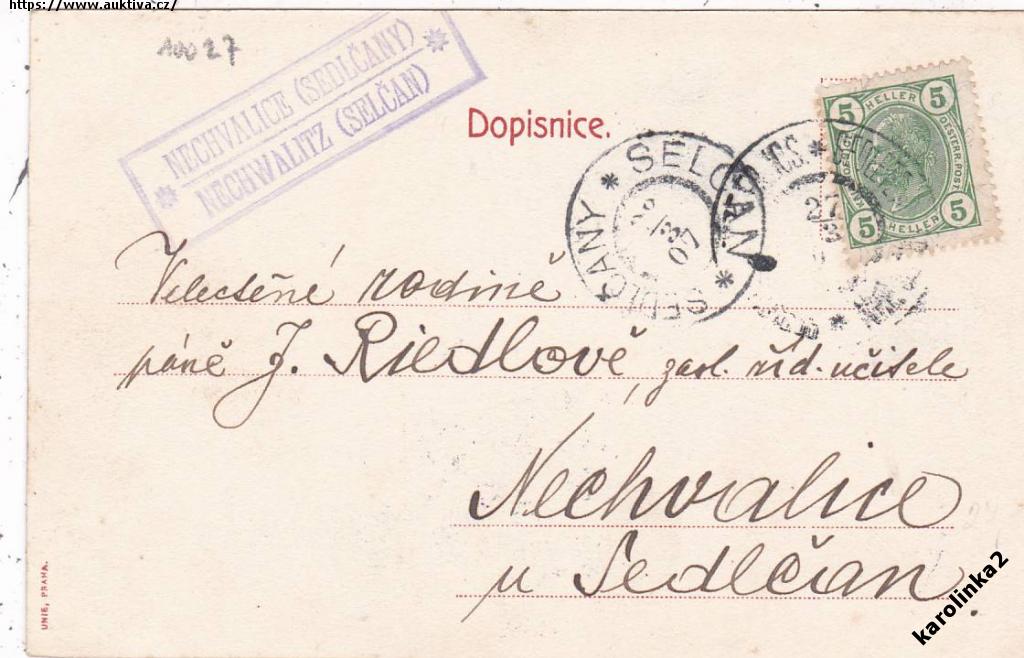 https://www.auktiva.cz/
10027
NECHVALICE (SEDLČANY)
NECHWALITZ (SELČAN)
Dopisnice.
SELČAN
SEDLČANY
27
5 HELLER 5
OESTERR. POST.
5 HELLER 5
Velectěné rodině
páně J. Riedlově, zasl. říd. učitele
Nechvalice
u Sedlčan.
UNIE, PRAHA.
karolinka2